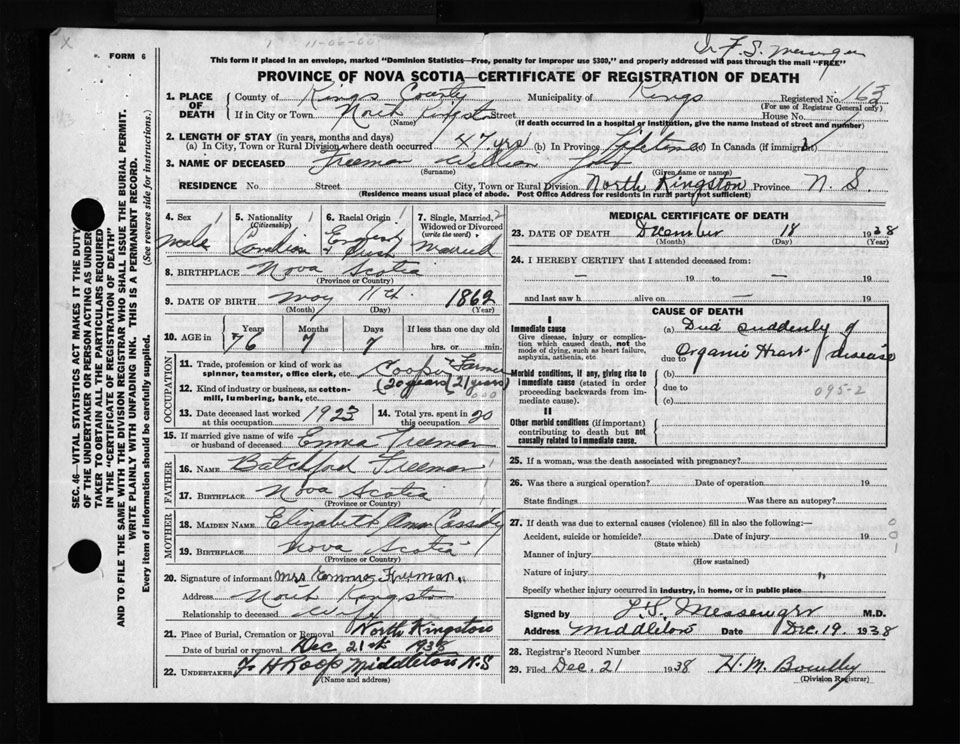 X
FORM 6
1 11-06-60
Dr F. S. Messenger
This form if placed in an envelope, marked "Dominion Statistics—Free, penalty for improper use $300," and properly addressed will pass through the mail "FREE"
PROVINCE OF NOVA SCOTIA—CERTIFICATE OF REGISTRATION OF DEATH
1. PLACE OF DEATH
County of Kings County Municipality of Kings Registered No. 163
(For use of Registrar General only)
If in City or Town North Kingston Street House No.
(Name) (If death occurred in a hospital or institution, give the name instead of street and number)
2. LENGTH OF STAY (in years, months and days)
(a) In City, Town or Rural Division where death occurred 47 yrs (b) In Province Lifetime (c) In Canada (if immigrant)
3. NAME OF DECEASED Freeman William John
(Surname) (Given name or names)
RESIDENCE No. Street City, Town or Rural Division North Kingston Province N. S.
(Residence means usual place of abode. Post Office Address for residents in rural parts not sufficient)
4. Sex 1
male
5. Nationality 1
(Citizenship)
Canadian
6. Racial Origin 1
English & Irish
7. Single, Married, 2
Widowed or Divorced
(write the word)
Married
8. BIRTHPLACE Nova Scotia
(Province or Country)
9. DATE OF BIRTH May 11th 1862
(Month) (Day) (Year)
10. AGE in
Years Months Days If less than one day old
76 7 7 hrs. or min.
OCCUPATION
11. Trade, profession or kind of work as
spinner, teamster, office clerk, etc. Cooper & Farmer
12. Kind of industry or business, as cotton-
mill, lumbering, bank, etc. (20 years) (21 years)
000
13. Date deceased last worked
at this occupation 1923
14. Total yrs. spent in
this occupation 20
15. If married give name of wife
or husband of deceased Emma Freeman
FATHER
16. NAME Batchford Freeman
17. BIRTHPLACE Nova Scotia
(Province or Country)
MOTHER
18. MAIDEN NAME Elizabeth Ann Cassidy
19. BIRTHPLACE Nova Scotia
(Province or Country)
20. Signature of informant Mrs Emma Freeman
Address North Kingston
Relationship to deceased Wife
21. Place of Burial, Cremation or Removal North Kingston
Date of burial or removal Dec 21st 1938
22. UNDERTAKER F H Roop Middleton N.S
(Name and address)
MEDICAL CERTIFICATE OF DEATH
23. DATE OF DEATH December 18 1938
(Month) (Day) (Year)
24. I HEREBY CERTIFY that I attended deceased from:
— 19 to — 19
and last saw h alive on — 19
CAUSE OF DEATH
I
Immediate cause
Give disease, injury or complica-
tion which caused death, not the
mode of dying, such as heart failure,
asphyxia, asthenia, etc
(a) Died suddenly of
due to Organic Heart disease
Morbid conditions, if any, giving rise to
immediate cause (stated in order
proceeding backwards from im-
mediate cause).
(b)
due to 095-2
(c)
II
Other morbid conditions (if important)
contributing to death but not
causally related to immediate cause.
25. If a woman, was the death associated with pregnancy?
26. Was there a surgical operation? Date of operation 19
State findings Was there an autopsy?
27. If death was due to external causes (violence) fill in also the following:—
Accident, suicide or homicide? Date of injury 19
(State which)
Manner of injury
(How sustained)
Nature of injury
Specify whether injury occurred in industry, in home, or in public place
Signed by F S. Messenger M.D.
Address Middleton Date Dec. 19. 1938
28. Registrar's Record Number
29. Filed Dec. 21 1938 H. M.
(Division Registrar)
SEC. 46—VITAL STATISTICS ACT MAKES IT THE DUTY
OF THE UNDERTAKER OR PERSON ACTING AS UNDER-
TAKER TO OBTAIN ALL THE PARTICULARS REQUIRED
IN THE "CERTIFICATE OF REGISTRATION OF DEATH"
AND TO FILE THE SAME WITH THE DIVISION REGISTRAR WHO SHALL ISSUE THE BURIAL PERMIT.
WRITE PLAINLY WITH UNFADING INK. THIS IS A PERMANENT RECORD.
Every item of information should be carefully supplied. (See reverse side for instructions.)